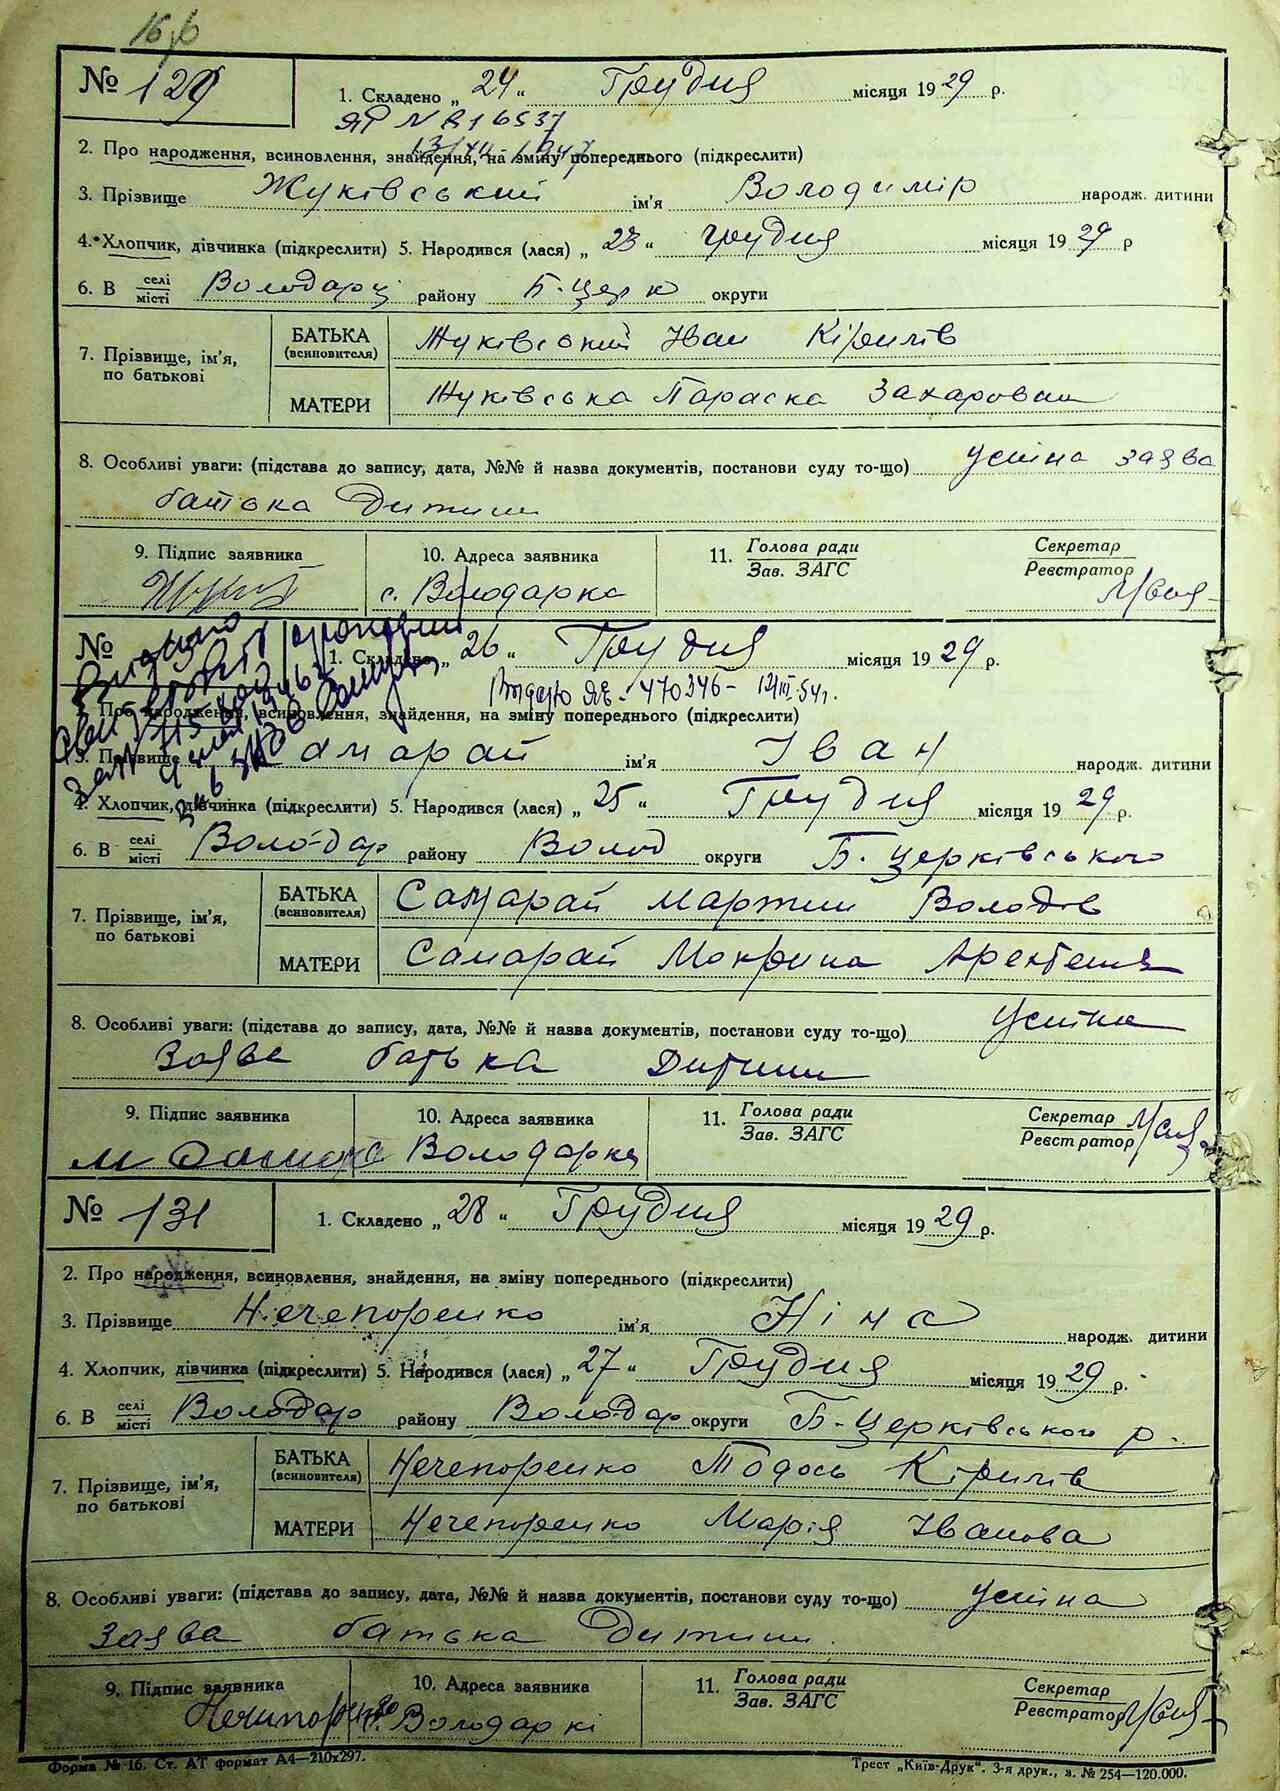 № 129
1. Складено „ 24 “ Грудня місяця 19 29 р.
2. Про народження, всиновлення, знайдення, на зміну попереднього (підкреслити)
3. Прізвище Жуківський ім'я Володимір народж. дитини
4. Хлопчик, дівчинка (підкреслити) 5. Народився (лася) „ 23 “ грудня місяця 19 29 р
6. В селі місті Володарці району Б-церк округи
7. Прізвище, ім'я, по батькові
БАТЬКА (всиновителя) Жуківський Іван Кірилів
МАТЕРИ Жуківська Параска Захаровна
8. Особливі уваги: (підстава до запису, дата, №№ й назва документів, постанови суду то-що) Усіна заява
батька Дитини
9. Підпис заявника 10. Адреса заявника 11. Голова ради Зав. ЗАГС Секретар Реєстратор
с. Володарка
№
1. Складено „ 26 “ Грудня місяця 19 29 р.
Видано ЯЕ-470346- 12/III 54 г.
2. Про народження, всиновлення, знайдення, на зміну попереднього (підкреслити)
3. Прізвище Самарай ім'я Іван народж. дитини
4. Хлопчик, дівчинка (підкреслити) 5. Народився (лася) „ 25 “ Грудня місяця 19 29 р.
6. В селі місті Володар району Волод округи Б. Церківського
7. Прізвище, ім'я, по батькові
БАТЬКА (всиновителя) Самарай Мартин Володів
МАТЕРИ Самарай Мокрина
8. Особливі уваги: (підстава до запису, дата, №№ й назва документів, постанови суду то-що) Усіна
Заява батька Дитини
9. Підпис заявника 10. Адреса заявника 11. Голова ради Зав. ЗАГС Секретар Реєстратор
с Володарка
№ 131
1. Складено „ 28 “ Грудня місяця 19 29 р.
2. Про народження, всиновлення, знайдення, на зміну попереднього (підкреслити)
3. Прізвище Нечепоренко ім'я Ніна народж. дитини
4. Хлопчик, дівчинка (підкреслити) 5. Народився (лася) „ 27 “ Грудня місяця 19 29 р.
6. В селі місті Володар району Володар округи Б-Церківського р.
7. Прізвище, ім'я, по батькові
БАТЬКА (всиновителя) Нечепоренко Тодось Кірилів
МАТЕРИ Нечепоренко Марія Іванова
8. Особливі уваги: (підстава до запису, дата, №№ й назва документів, постанови суду то-що) Усіна
Заява батька Дитини.
9. Підпис заявника 10. Адреса заявника 11. Голова ради Зав. ЗАГС Секретар Реєстратор
Нечипоренко с. Володаркі
Форма № 16. Ст. АТ формат А4—210х297.
Трест „Київ-Друк“. 3-я друк., з. № 254—120.000.